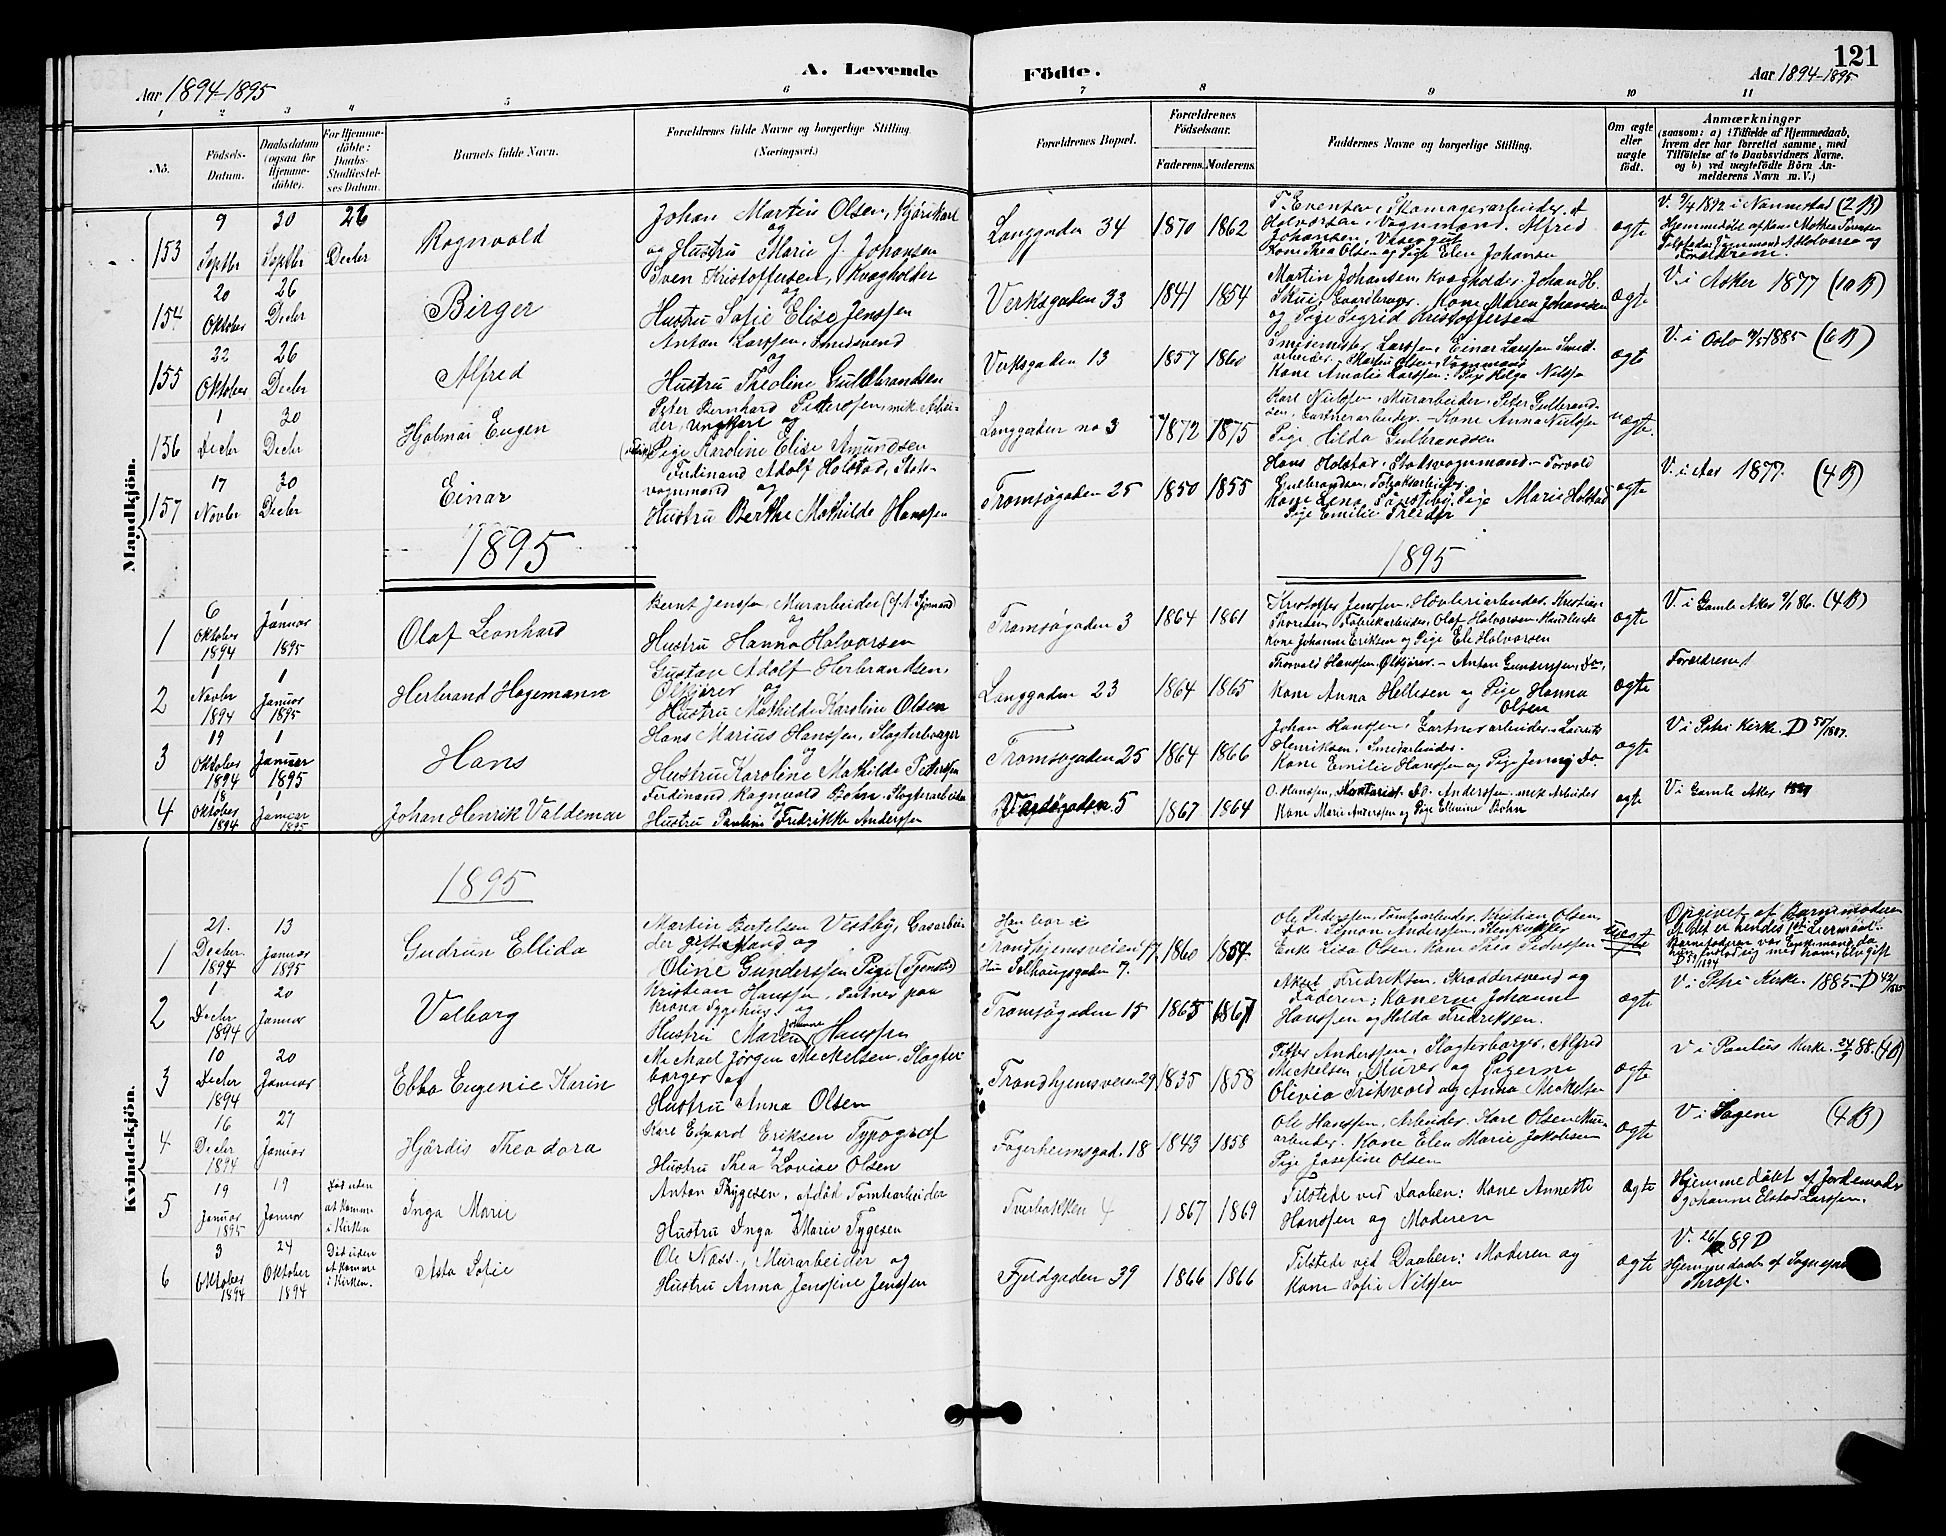 A. Levende Födte.
121
Aar 1894-1895
Aar 1894-1895
1 2 3 4 5 6 7 8 9 10 11
No.
Födsels-Datum.
Daabsdatum (ogsaa for Hjemmedöbte).
For Hjemmedöbte: Daabs-Stadfæstelses Datum.
Barnets fulde Navn.
Forældrenes fulde Navne og borgerlige Stilling.
(Næringsvei.)
Forældrenes Bopæl.
Forældrenes Födselsaar.
Faderens. Moderens.
Faddernes Navne og borgerlige Stilling.
Om ægte eller uægte født.
Anmærkninger
(saasom: a) i Tilfælde af Hjemmedaab, hvem der har forrettet samme, med Tilföielse af to Daabsvidners Navne. og b) ved uægtefödte Börn Anmelderens Navn m. V.)
Mandkjön.
153 9 Septbr 30 Septbr 26 Decbr
Ragnvald
Johan Martin Olsen, Kjörekarl
og Hustru Marie J. Johansen
Langgaden 34 1870 1862
Halvorsen, Vognmand. Alfred
Johansen, Visergut
Kone Thea Olsen og Pige Elen Johansen
ægte
V. 3/4 1892 i Nannestad (2 B)
154 20 Oktober 26 Decbr
Birger
Sven Kristoffersen, Kvægholder
og
Hustru Sofie Elise Jenssen
Verksgaden 33 1841 1854
Martin Johansen, Kvægholder, Johan H.
Skui, Gaardbruger. Kone Maren Johansen
og Pige Sigrid Kristoffersen
ægte
V. i Asker 1877 (10 B)
155 22 Oktober 26 Decbr
Alfred
Anton Larssen, Smedsvend
og
Hustru Theoline Guldbrandsen
Verksgaden 13 1857 1860
Smedmester Larssen, Einar Larssen Smed-
arbeider. Martin Olsen, Vognmand
Kone Amalie Larssen: Pige Helga Nilssen
ægte
V. i Oslo 1885 (6 B)
156 1 Decbr 30 Decbr
Hjalmar Eugen
Peter Bernhard Pettersen, mek. Arbei-
der, Ungkarl og
Pige Karoline Elise Amundsen
Langgaden no 3 1872 1875
Karl Nielsen, Murarbeider, Peter Gulbrand-
sen, Gartnerarbeider. - Kone Anna Nielsen
Pige Hilda Gulbrandsen
uægte.
157 17 Novbr 30 Decbr
Einar
Ferdinand Adolf Holstad, Stads-
vognmand og
Hustru Berthe Mathilde Hanssen
Tromsøgaden 25 1850 1855
Hans Holstad, Stadsvognmand - Torvald
Gulbrandsen, Tobakkarbeider,
Kone Lena Sønsteby, Pige Marie Holstad
Pige Emilie Trender
ægte
V. i Aas 1877. (4 B)
1895
1895
1 6 Oktober 1894 1 Januar 1895
Olaf Leonhard
Bernt Jenssen, Murarbeider
og
Hustru Hanna Halvorsen
Tromsøgaden 3 1864 1861
Kristoffer Jenssen, Høvleriarbeider, Kristian
Thoresen, Fabrikarbeider, Olaf Halvorsen, Handlende
Kone Johanne Eriksen og Pige Ele Halvorsen
ægte
V. i Gamle Aker 86. (4 B)
2 1 Novbr 1894 1 Januar 1895
Herbrand Hagemann
Gustav Adolf Herbrandsen,
Ølkjører og
Hustru Mathilde Karoline Olsen
Langgaden 23 1864 1865
Thorvald Hanssen, Ølkjører. - Anton Gunderssen, Do,
Kone Anna Hellesen og Pige Hanna
Olsen
ægte
Forældrene!
3 19 Oktober 1894 1 Januar 1895
Hans
Hans Marius Hanssen, Slagterborger
og
Hustru Karoline Mathilde Pettersen
Tromsøgaden 25 1864 1866
Johan Hanssen, Gartnerarbeider, Laurits
Henriksen, Smedarbeider.
Kone Emilie Hanssen og Pige Jenny Do.
ægte
V i Petri Kirke. D 1887.
4 18 Oktober 1894 1 Januar 1895
Johan Henrik Valdemar
Ferdinand Ragnvald Bohn, Slagterarbeider
Hustru Pauline Fredrikke Anderssen
Vardøgaden 5 1867 1864
O. Hanssen, Kontorist. Anderssen, mek. Arbeider
Kone Marie Anderssen og Pige Ellevine Bohn
ægte
V i Gamle Aker
Kvindekjön.
1895
1 21. Decbr. 1894 13 Januar 1895
Gudrun Ellida
Martin Bertelsen Vestby, Gasarbei-
der gift Mand og
Oline Gunderssen Pige (Tjeneste)
Han bor i
Trondhjemsveien 17,
Hun Solhaugsgaden 7. 1860 1854
Ole Pederssen, Tomtearbeider, Kristian Olsen,
Do. Simon Anderssen, Stenhugger
Enke Lisa Olsen, Kone Thea Pederssen
uægte
Opgivet af Barnemoderen
at det er hendes 1ste Leiermaal.
Barnefaderen var Enkemand, da
2 1 Decbr 1894 20 Januar
Valborg
Kristian Hanssen, Gartner paa
Krona Sygehus og
Hustru Maren Johanne Hanssen
Tromsøgaden 15 1865 1867
Aksel Fredriksen, Skræddersvend og
Faderen; Konerne Johanne
Hanssen og Hilda Fredriksen.
ægte
V i Petri Kirke. 1885. D
3 10 Decbr 1894 20 Januar
Ebba Eugenie Karin
Michael Jørgen Mickelsen, Slagter-
borger og
Hustru Anna Olsen
Trondhjemsveien 29 1835 1858
Petter Anderssen, Slagterborger, Alfred
Mickelsen, Murer og Pigerne
Olivia Friksvold og Anna Mickelsen
ægte
V i Paulus Kirke. 88. (4 B)
4 16 Decbr 1894 27 Januar
Hjördis Theodora
Karl Edvard Eriksen Typograf
og
Hustru Thea Lovise Olsen
Fagerheimsgad. 18 1843 1858
Ole Hanssen, Arbeider, Karl Olsen Mur-
arbeider. Kone Elen Marie Jakobsen
Pige Josefine Olsen
ægte
V i Sagene (4 B)
5 19 Januar 1895 19 Januar
Død uden at komme i Kirken
Inga Marie
Anton Thygesen, afdöd Tomtearbeider
Hustru Inga Marie Tygesen
Tverbakken 4 1867 1869
Tilstede ved Daaben: Kone Annette
Hanssen og Moderen
ægte
Hjemmedøbt af Jordemoder
Johanne Elstad Larssen.
6 3 Oktober 1894 24 Oktober 1894
Død uden at komme i Kirken.
Asta Sofie
Ole Næss, Murarbeider og
Hustru Anna Jenssine Jenssen
Fjeldgaden 39 1866 1866
Tilstede ved Daaben: Moderen og
Kone Sofie Nilssen
ægte
V. 89 D
Hjemmedaab af Sognepr.